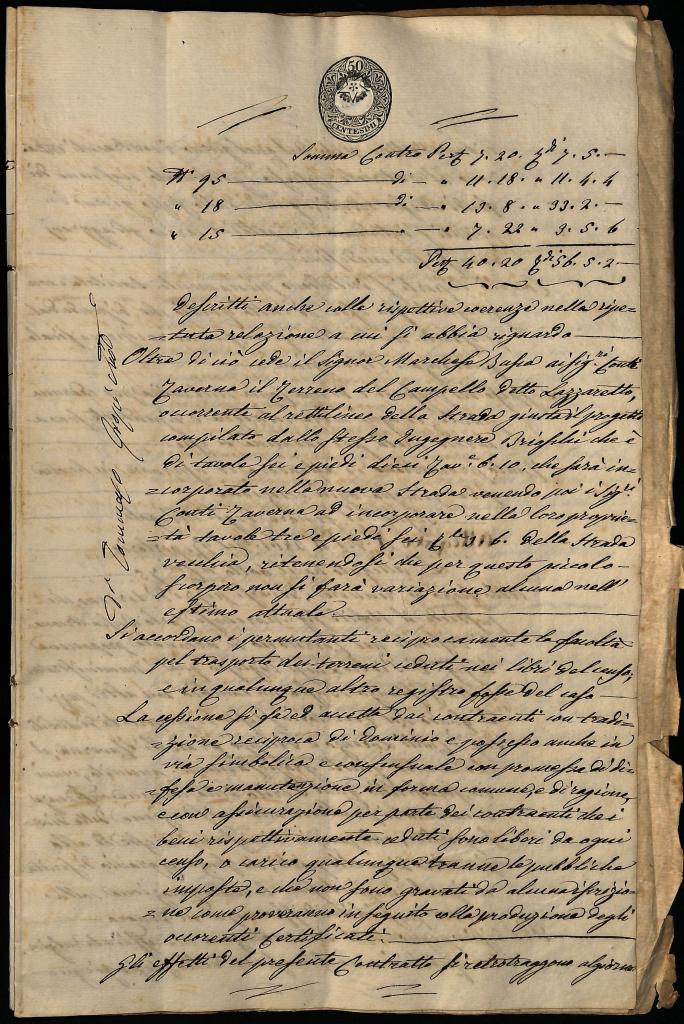 50
CENTESIMI
Somma Contro Pert 7. 20. Sdi 7. 5. —
N° 95 — di — " 11. 18. " 11. 4. 4
" 18 — di — " 13. 8. " 33. 2. —
" 15 — " — " 7. 22 " 3. 5. 6
Pert 40. 20 Sdi 56. 5. 2 —
descritti anche colle rispettive coerenze nella ripe-
=tuta relazione a cui si abbia riguardo
Oltre di ciò cede il Signor Marchese Busca ai Sigri Conti
Taverna il Terreno del Campello detto Lazzaretto,
occorrente al rettilineo della Strada giusta il progetto
compilato dallo stesso Ingegnere Brioschi che è
di tavole sei e piedi dieci Tave 6. 10, che sarà in-
=corporato nella nuova Strada venendo poi i Sigri
Conti Taverna ad incorporare nella loro proprie-
tà tavole tre e piedi sei 3. 6. della Strada
vecchia, ritenendosi che per questo piccolo
scorporo non si farà variazione alcuna nell'
estimo attuale.
Si accordano i permutanti reciprocamente la facoltà
pel trasporto dei terreni ceduti nei libri del censo,
e in qualunque altro registro fosse del caso
La cessione si fa ed accetta dai contraenti con tradi-
=zione reciproca di dominio e possesso anche in
via simbolica e consensuale con promessa di di-
=fesa e manutenzione in forma comune, e di ragione,
e con assicurazione per parte dei contraenti che i
beni rispettivamente ceduti sono liberi da ogni
censo, o carico qualunque tranne le pubbliche
imposte, e che non sono gravati da alcuna iscrizio-
=ne come proveranno in seguito colla produzione degli
occorenti Certificati.
Gli effetti del presente Contratto si retrotraggono al giorno
Dr Tommaso